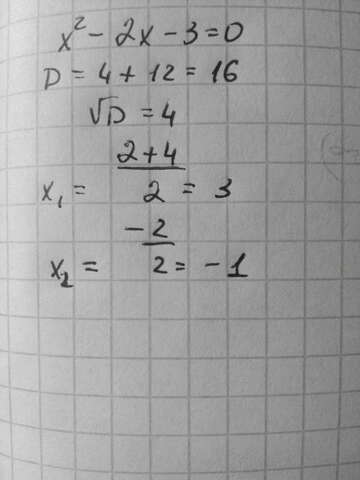 x² - 2x - 3 = 0
D = 4 + 12 = 16
√D = 4
x₁ = (2+4)/2 = 3
x₂ = -2/2 = -1